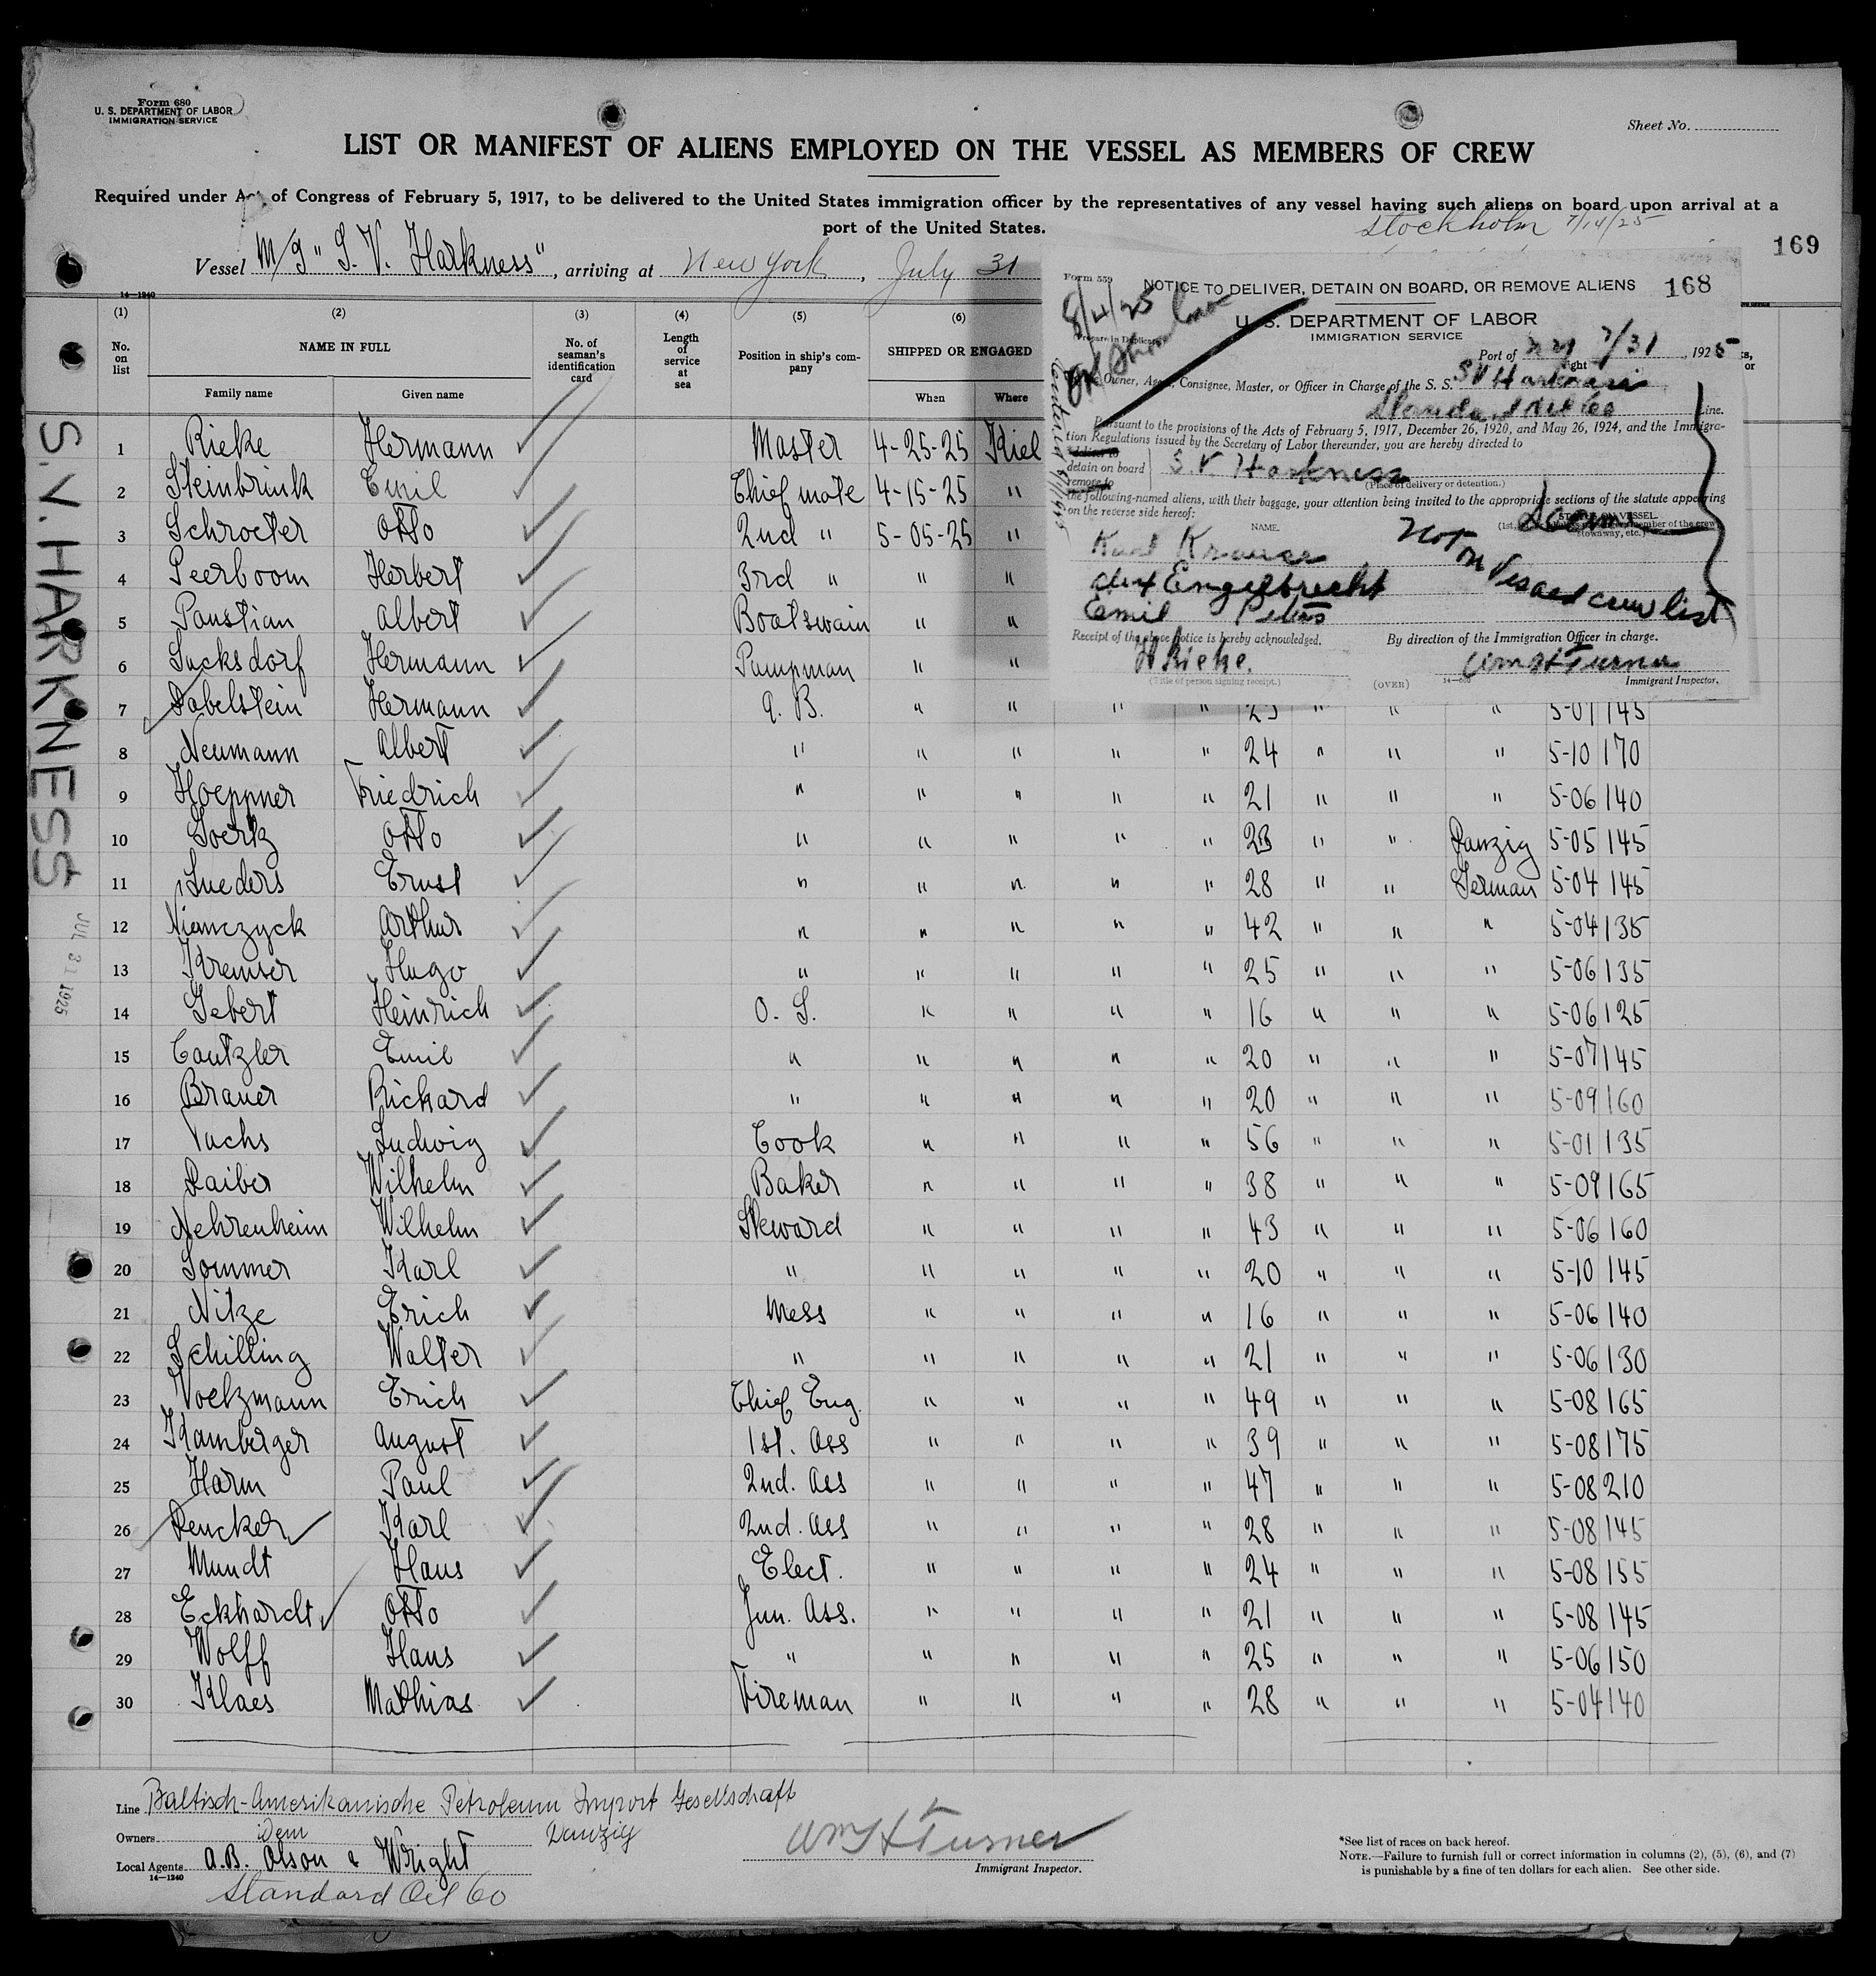 Form 680
U. S. DEPARTMENT OF LABOR
IMMIGRATION SERVICE
Sheet No.
LIST OR MANIFEST OF ALIENS EMPLOYED ON THE VESSEL AS MEMBERS OF CREW
Required under Act of Congress of February 5, 1917, to be delivered to the United States immigration officer by the representatives of any vessel having such aliens on board upon arrival at a
port of the United States.
Stockholm 7/14/25
169
Vessel M/S "S. V. Harkness", arriving at New York, July 31
14—1240
(1) (2) (3) (4) (5) (6)
No. on list
NAME IN FULL
Family name Given name
No. of seaman's identification card
Length of service at sea
Position in ship's company
SHIPPED OR ENGAGED
When Where
Form 559
NOTICE TO DELIVER, DETAIN ON BOARD, OR REMOVE ALIENS 168
8/4/25
(Prepare in Duplicate)
U. S. DEPARTMENT OF LABOR
IMMIGRATION SERVICE
Port of N Y 7/31, 1925
Owner, Agent, Consignee, Master, or Officer in Charge of the S. S. SV Harkness
Standard Oil Co Line.
Pursuant to the provisions of the Acts of February 5, 1917, December 26, 1920, and May 26, 1924, and the Immigra-
tion Regulations issued by the Secretary of Labor thereunder, you are hereby directed to
deliver to
detain on board S. V Harkness
remove to
(Place of delivery or detention.)
the following-named aliens, with their baggage, your attention being invited to the appropriate sections of the statute appearing
on the reverse side hereof:
NAME. STATUS ON VESSEL
Kurt Krause
Engelbrecht
Emil Peters
Not on Visaed crew list
Receipt of the above notice is hereby acknowledged. By direction of the Immigration Officer in charge.
H Rieke. Wm H Turner
(Title of person signing receipt.) (OVER) Immigrant Inspector.
S.V. HARKNESS
JUL 31 1925
1 Rieke Hermann Master 4-25-25 Kiel
2 Steinbrink Emil Chief mate 4-15-25 "
3 Schroeter Otto 2nd " 5-05-25 "
4 Peerboom Herbert 3rd " " "
5 Paustian Albert Boatswain " "
6 Sucksdorf Hermann Pumpman " "
7 Dabelstein Hermann A. B. " " " " 23 " " " 5-07 145
8 Neumann Albert " " " " " 24 " " " 5-10 170
9 Hoeppner Friedrich " " " " " 21 " " " 5-06 140
10 Goertz Otto " " " " " 23 " " Danzig 5-05 145
11 Lueders Ernst " " " " " 28 " " German 5-04 145
12 Niemczyck Arthur " " " " " 42 " " " 5-04 135
13 Kremser Hugo " " " " " 25 " " " 5-06 135
14 Gebert Heinrich O. S. " " " " 16 " " " 5-06 125
15 Cantzler Emil " " " " " 20 " " " 5-07 145
16 Brauer Richard " " " " " 20 " " " 5-09 160
17 Fuchs Ludwig Cook " " " " 56 " " " 5-01 135
18 Daiber Wilhelm Baker " " " " 38 " " " 5-09 165
19 Nehrenheim Wilhelm Steward " " " " 43 " " " 5-06 160
20 Sommer Karl " " " " " 20 " " " 5-10 145
21 Nitze Erich Mess " " " " 16 " " " 5-06 140
22 Schilling Walter " " " " " 21 " " " 5-06 130
23 Voelzmann Erich Chief Eng. " " " " 49 " " " 5-08 165
24 Kamberger August 1st. Ass " " " " 39 " " " 5-08 175
25 Harm Paul 2nd. Ass " " " " 47 " " " 5-08 210
26 Dencker Karl 2nd. Ass " " " " 28 " " " 5-08 145
27 Mundt Hans Elect. " " " " 24 " " " 5-08 155
28 Eckhardt Otto Jun. Ass. " " " " 21 " " " 5-08 145
29 Wolff Hans " " " " " 25 " " " 5-06 150
30 Klaes Mathias Fireman " " " " 28 " " " 5-04 140
Line Baltisch-Amerikanische Petroleum Import Gesellschaft
Owners Dem Danzig
Local Agents A.B. Olson & Wright
14—1240
Standard Oil Co
Wm H Turner
Immigrant Inspector.
*See list of races on back hereof.
NOTE.—Failure to furnish full or correct information in columns (2), (5), (6), and (7)
is punishable by a fine of ten dollars for each alien. See other side.